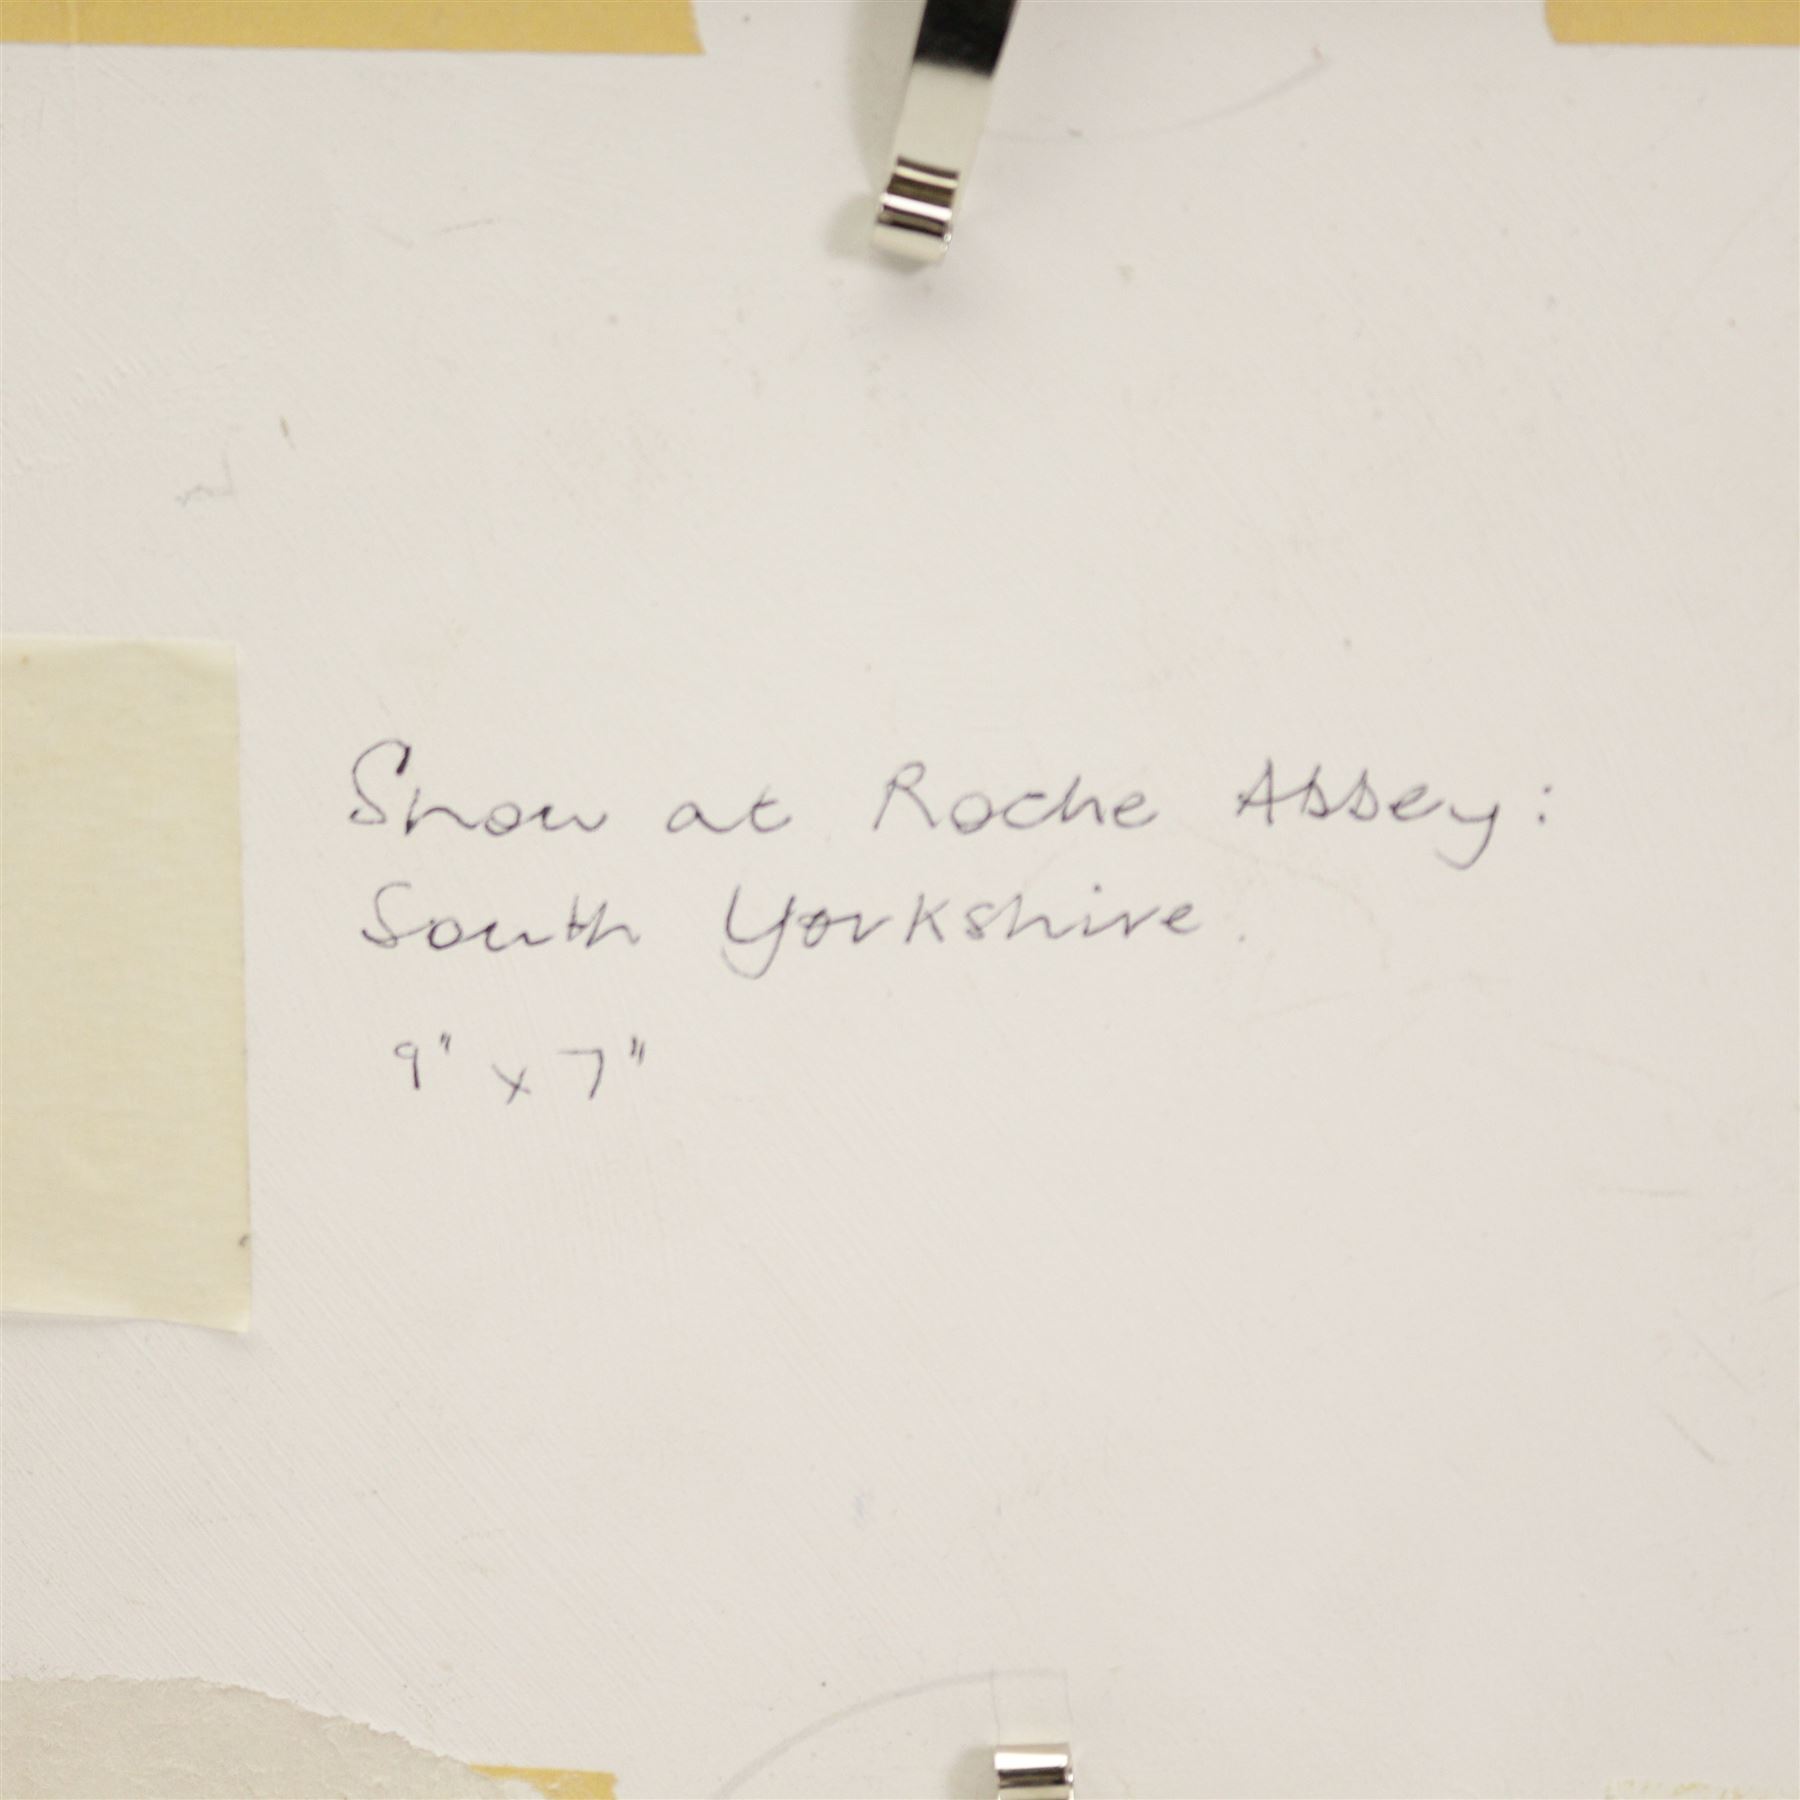 Snow at Roche Abbey:
South Yorkshire.
9" x 7"